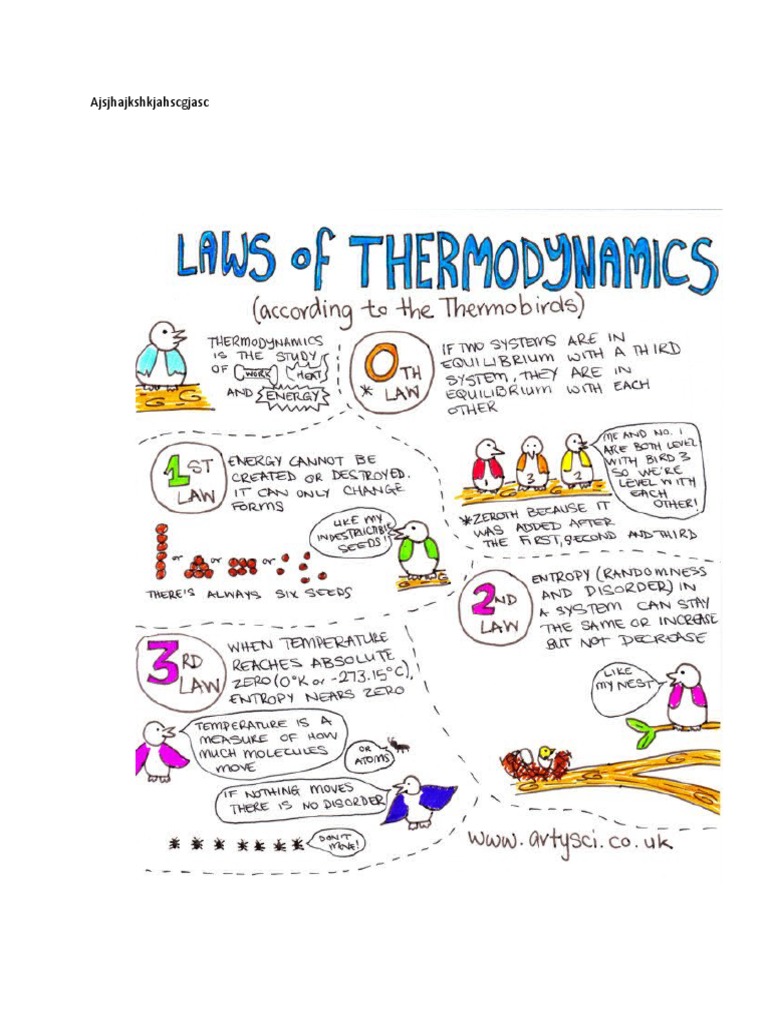 Ajsjhajkshkjahscgjasc
LAWS OF THERMODYNAMICS
(according to the Thermobirds)
THERMODYNAMICS
IS THE STUDY
OF WORK HEAT
AND ENERGY
0TH
* LAW
IF TWO SYSTEMS ARE IN
EQUILIBRIUM WITH A THIRD
SYSTEM, THEY ARE IN
EQUILIBRIUM WITH EACH
OTHER
1 3 2
ME AND NO. 1
ARE BOTH LEVEL
WITH BIRD 3
SO WE'RE
LEVEL WITH
EACH
OTHER!
*ZEROTH BECAUSE IT
WAS ADDED AFTER
THE FIRST, SECOND AND THIRD
1ST
LAW
ENERGY CANNOT BE
CREATED OR DESTROYED.
IT CAN ONLY CHANGE
FORMS
LIKE MY
INDESTRUCTIBLE
SEEDS!
or or or
THERE'S ALWAYS SIX SEEDS
2ND
LAW
ENTROPY (RANDOMNESS
AND DISORDER) IN
A SYSTEM CAN STAY
THE SAME OR INCREASE
BUT NOT DECREASE
LIKE
MY NEST
3RD
LAW
WHEN TEMPERATURE
REACHES ABSOLUTE
ZERO (0°K or -273.15°C),
ENTROPY NEARS ZERO
TEMPERATURE IS A
MEASURE OF HOW
MUCH MOLECULES
MOVE
OR
ATOMS
IF NOTHING MOVES
THERE IS NO DISORDER
DON'T
MOVE!
www.artysci.co.uk